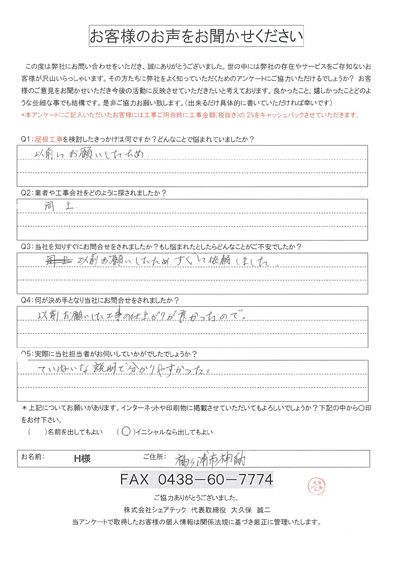 お客様のお声をお聞かせください
この度は弊社にお問い合わせをいただき、誠にありがとうございました。世の中には弊社の存在やサービスをご存知ないお
客様が沢山いらっしゃいます。その方たちに弊社をよく知っていただくためのアンケートにご協力いただけるでしょうか？ お客
様のご意見をお聞かせいただき今後の活動に反映させていただきたいと考えております。良かったこと、嬉しかったことどのよ
うな些細な事でも結構です。是非ご協力お願い致します。（出来るだけ具体的に書いていただければ幸いです）
*本アンケートにご記入いただいたお客様には工事ご用命時に工事金額(税抜き)の 2%をキャッシュバックさせていただきます。
Q1：屋根工事を検討したきっかけは何ですか？どんなことで悩まれていましたか？
以前にお願いしたため
Q2：業者や工事会社をどのように探されましたか？
同上
Q3：当社を知りすぐにお問合せをされましたか？もし悩まれたとしたらどんなことがご不安でしたか？
以前お願いしたためすぐに依頼しました。
Q4：何が決め手となり当社にお問合せをされましたか？
以前お願いした工事の仕上がりが良かったので。
Q5：実際に当社担当者がお伺いしていかがでしたでしょうか？
ていねいな説明で分かりやすかった。
＊上記についてお願いがあります。インターネットや印刷物に掲載させていただいてもよろしいでしょうか？下記の中から〇印
をお付下さい。
（　）名前を出してもよい　（〇）イニシャルなら出してもよい
お名前：　H様　ご住所：　袖ヶ浦市
FAX 0438-60-7774
ご協力ありがとうございました。
株式会社シェアテック 代表取締役 大久保 誠二
当アンケートで取得したお客様の個人情報は関係法規に基づき厳正に管理いたします。